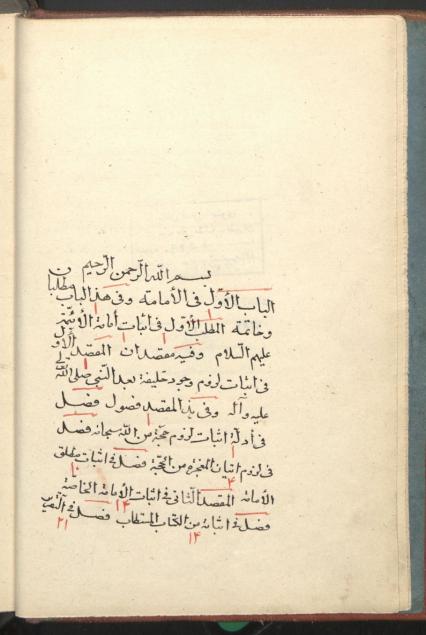 بسم الله الرحمن الرحيم
الباب الأوّل فى الأمامة وفى هذا الباب مطلبان
وخاتمة المطلب الأوّل فى اثبات امامة الأئمّة
عليهم السّلام وفيه مقصدان المقصد الاوّل
فى اثبات لزوم وجود خليفة بعد النّبى صلى اللّه
عليه وآله وفى هذا المقصد فصول فصل
فى أدلّة اثبات لزوم حجّة من اللّه سبحانه فصل
فى لزوم اتيان المعجزة من الحجّة فصل فى اثبات مطلق
الأمامة المقصد الثّانى فى اثبات الأمامة الخاصّة
فصل فى اثباته من الكتاب المستطاب فصل فى